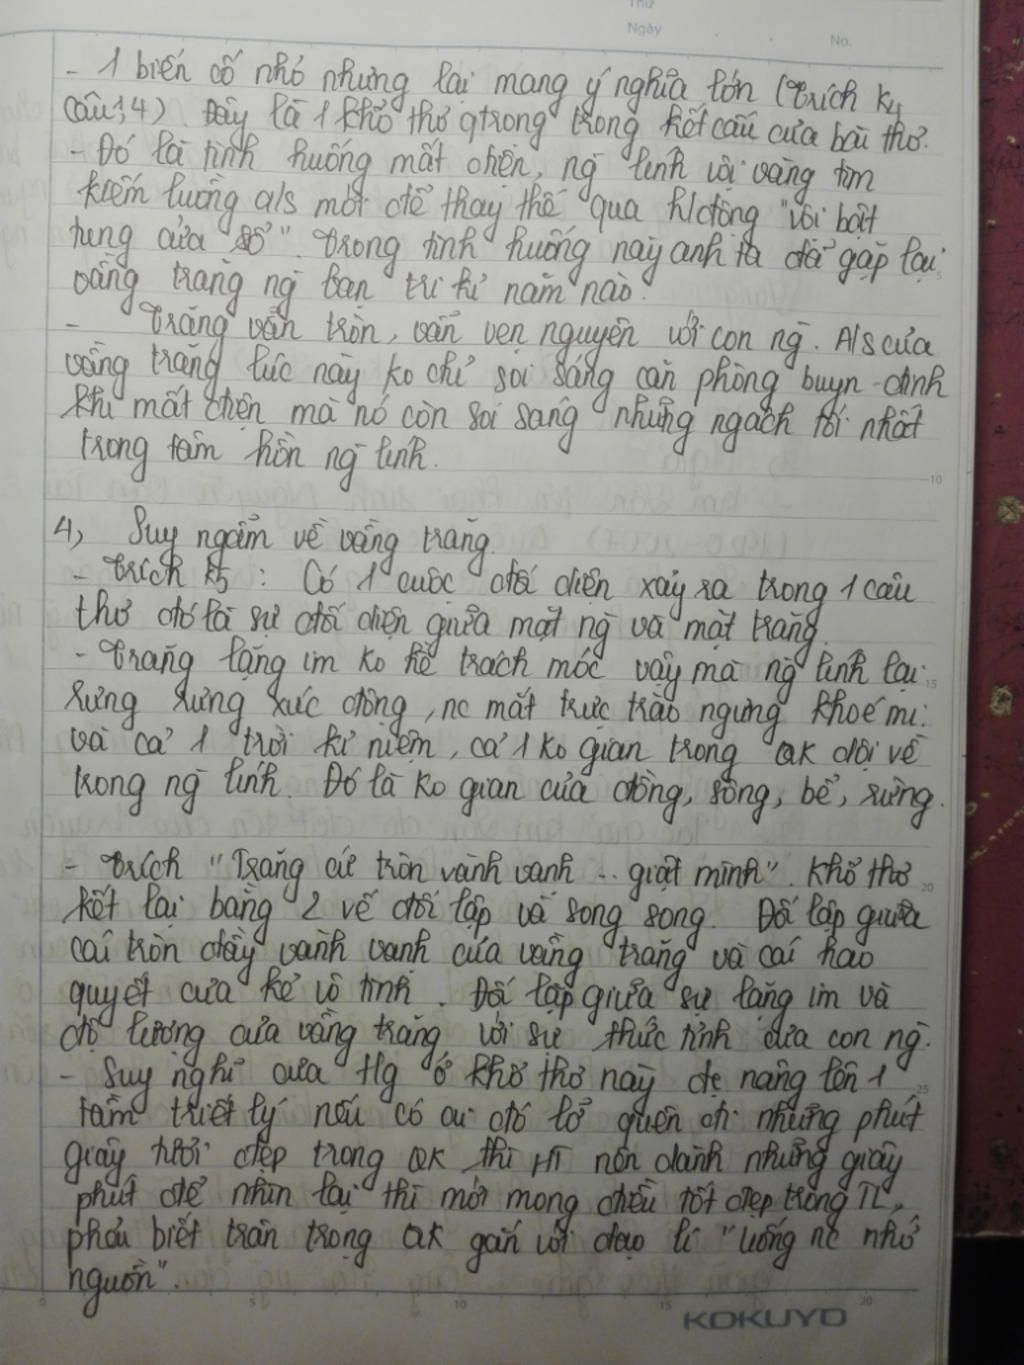 Thứ
Ngày
No.
- 1 biến cố nhỏ nhưng lại mang ý nghĩa lớn (trích K4
câu 1,4). Đây là 1 khổ thơ qtrong trong kết cấu của bài thơ.
- Đó là tình huống mất điện, ng lính vội vàng tìm
kiếm luồng a/s mới để thay thế qua h/động "vội bật
tung cửa sổ". Trong tình huống này anh ta đã gặp lại
vầng trăng ng bạn tri kỉ năm nào.
- Trăng vẫn tròn, vẫn vẹn nguyên với con ng. A/s của
vầng trăng lúc này ko chỉ soi sáng căn phòng buyn-đinh
khi mất điện mà nó còn soi sáng những ngách tối nhất
trong tâm hồn ng lính.
10
4, Suy ngẫm về vầng trăng.
- Trích K5: Có 1 cuộc đối diện xảy ra trong 1 câu
thơ đó là sự đối diện giữa mặt ng và mặt trăng.
- Trăng lặng im ko hề trách móc vậy mà ng lính lại
15
rưng rưng xúc động, nc mắt trực trào ngưng khoé mi
và cả 1 trời kỉ niệm, cả 1 ko gian trong QK dội về
trong ng lính. Đó là ko gian của đồng, sông, bể, rừng.
- Trích "Trăng cứ tròn vành vạnh .. giật mình". Khổ thơ
20
kết lại bằng 2 vế đối lập và song song. Đối lập giữa
cái tròn đầy vành vạnh của vầng trăng và cái hao
quyết của kẻ vô tình. Đối lập giữa sự lặng im và
độ lượng của vầng trăng với sự thức tỉnh của con ng.
- Suy nghĩ của t/g ở khổ thơ này đc nâng lên 1
25
tầm triết lý nếu có ai đó lỡ quên đi những phút
giây tươi đẹp trong QK thì HT nên dành những giây
phút để nhìn lại thì mới mong điều tốt đẹp trong TL,
phải biết trân trọng QK gắn với đạo lí "Uống nc nhớ
nguồn".
0 5 10 15 20
KOKUYO